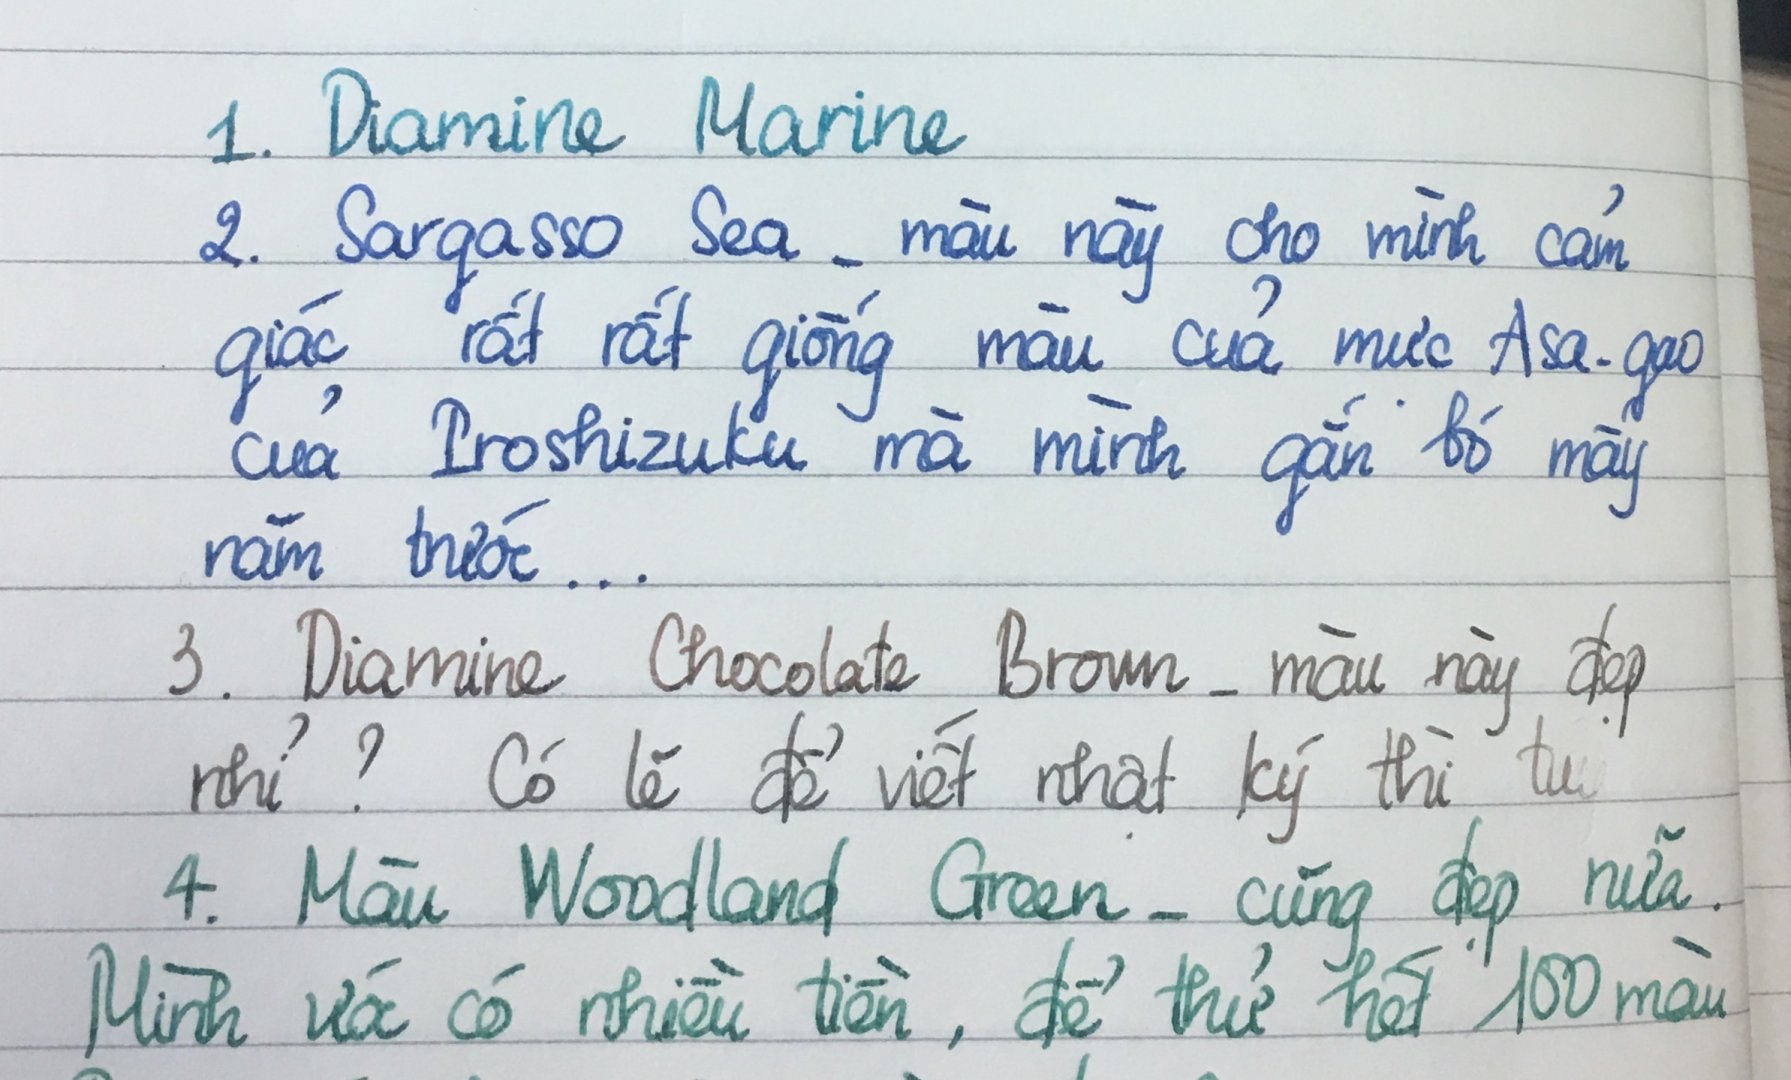 1. Diamine Marine
2. Sargasso Sea - màu này cho mình cảm
giác rất rất giống màu của mực Asa-gao
của Iroshizuku mà mình gắn bó mấy
năm trước...
3. Diamine Chocolate Brown - màu này đẹp
nhỉ? Có lẽ để viết nhật ký thì
4. Màu Woodland Green - cũng đẹp nữa.
Mình ước có nhiều tiền, để thử hết 100 màu